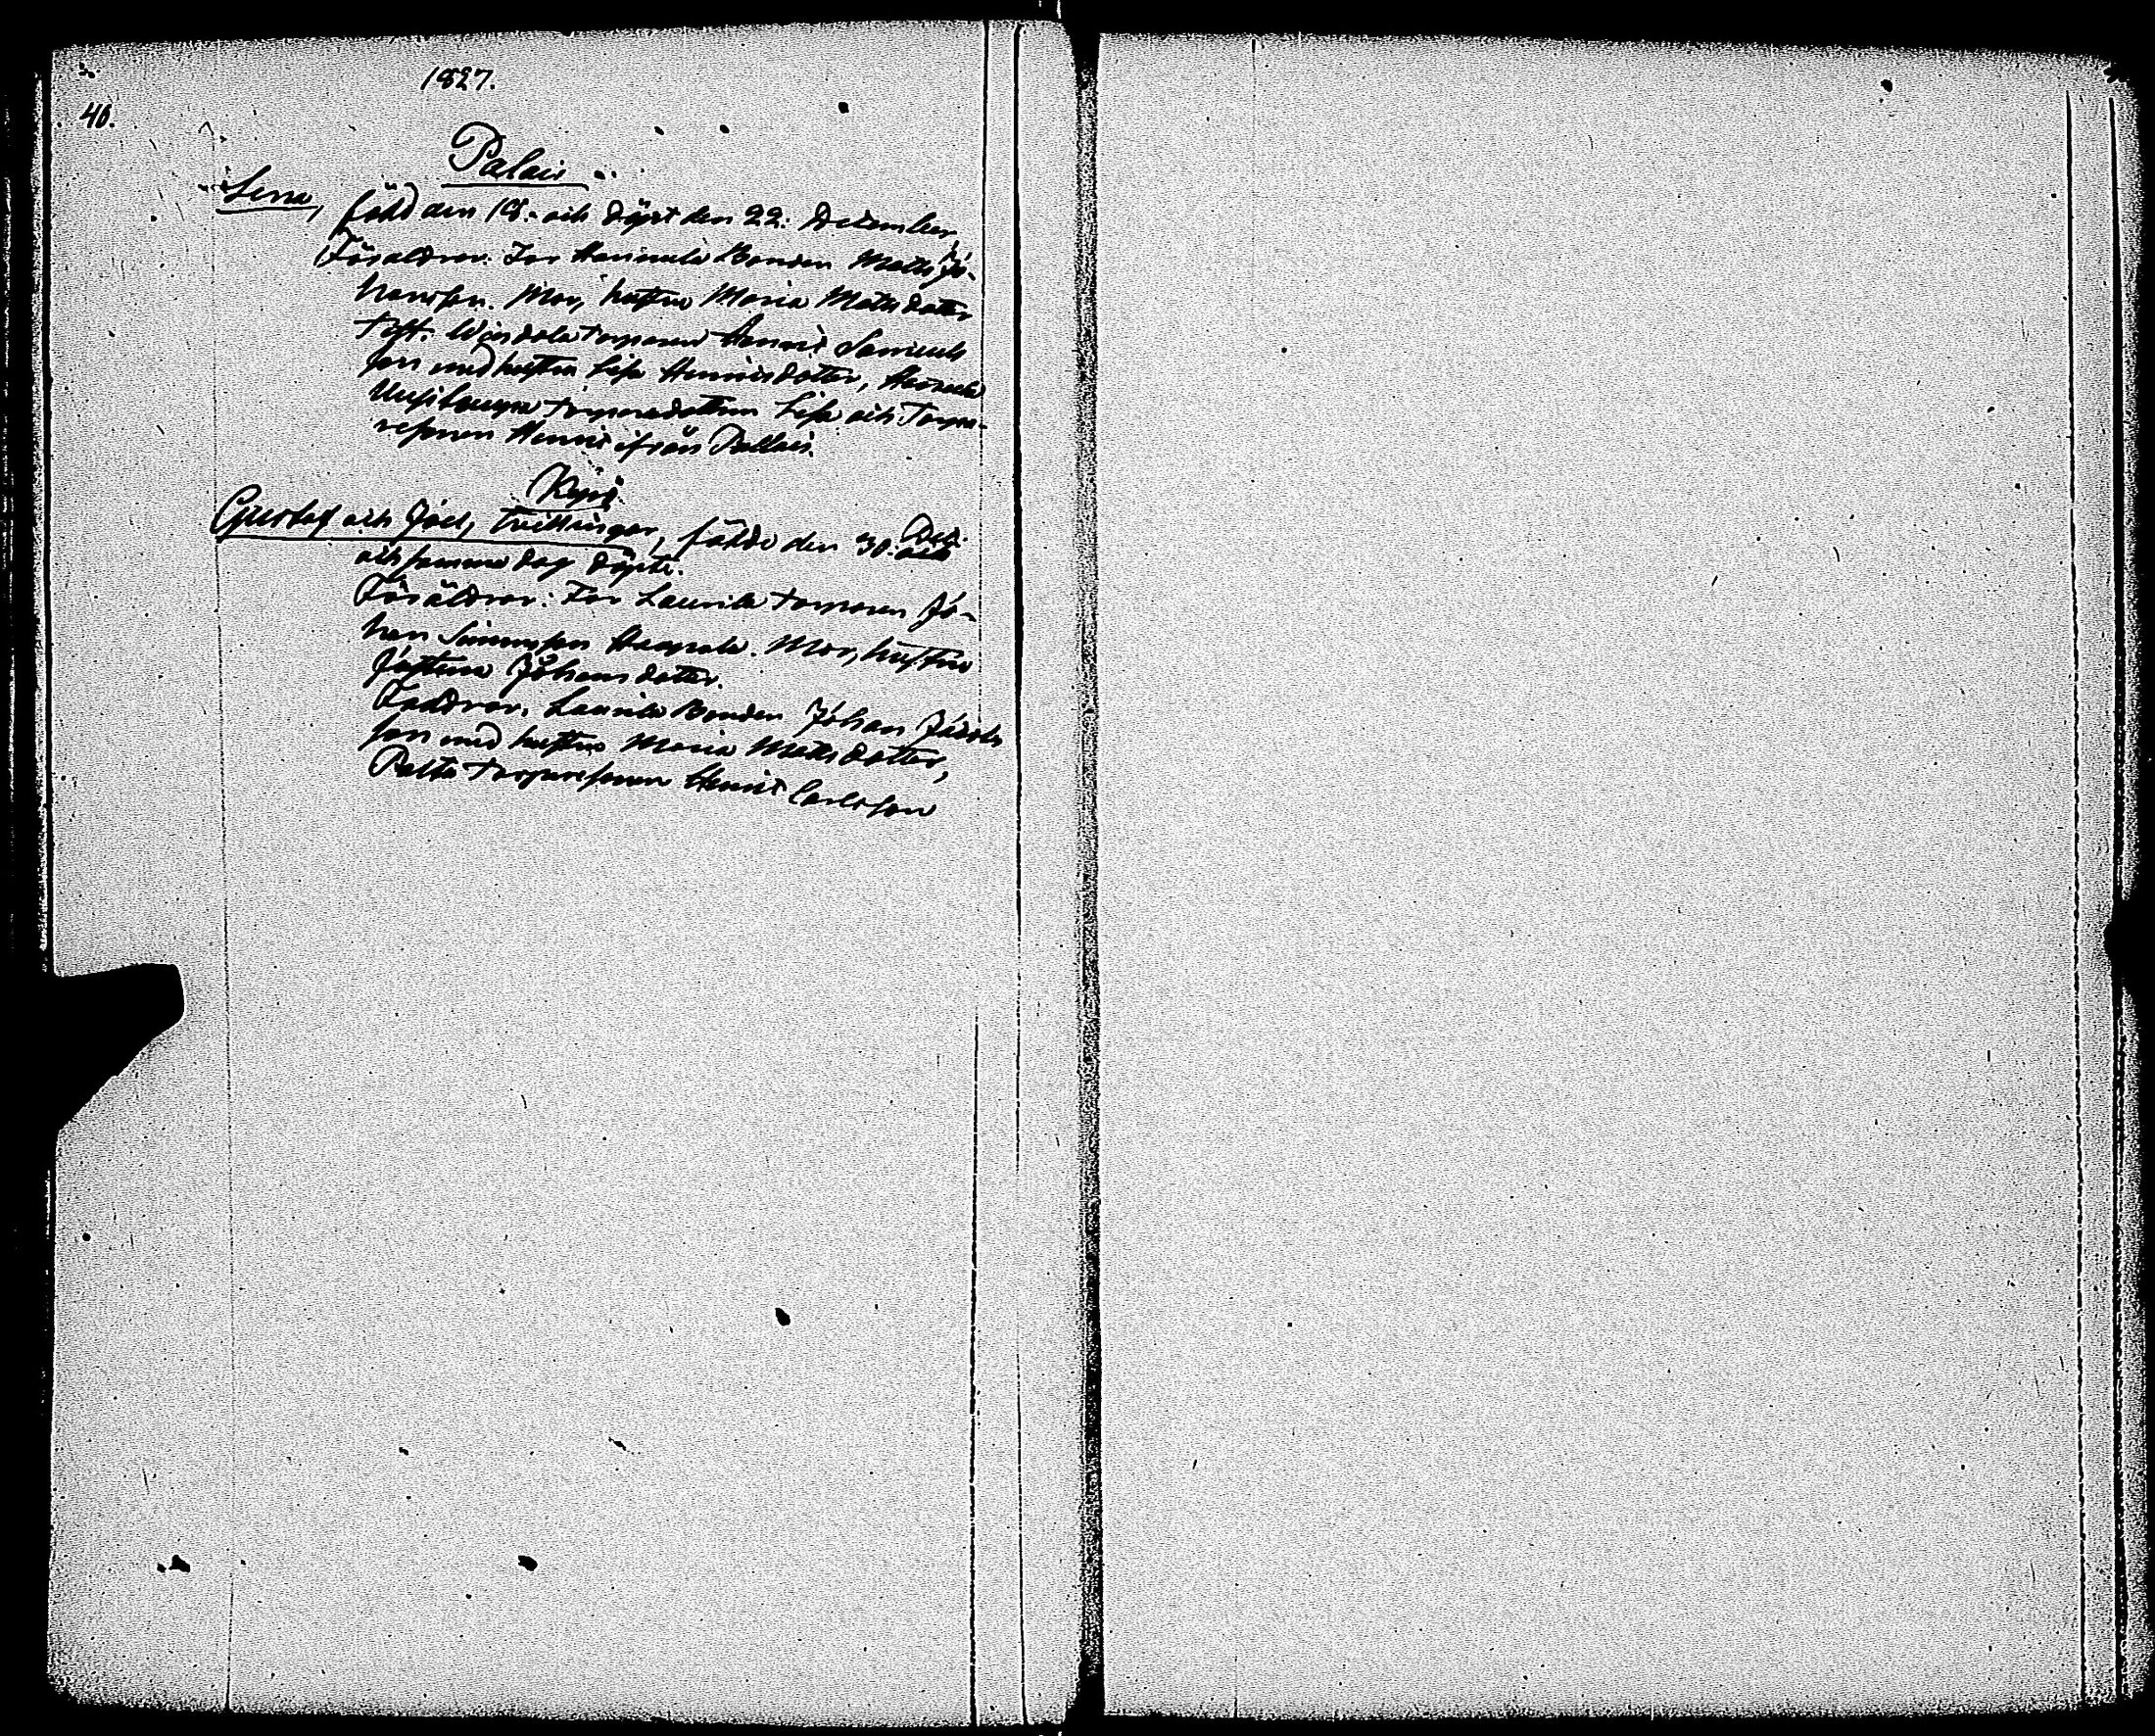 1827.
40.
Palais
Lena, född den 18. och döpt den 22. December
Föräldrar: Far Bonden Matts Jo-
hansson. Mor, hustru Maria Mattsdotter
Test. torparen Henric Samuels
son med hustru Lisa Henricsdotter,
torparedottren Lisa och Torpa-
resonen Henric ifrån Pallais.
Kypö
Gustaf och Joel, tvillingar, födde den 30. Dec.
och samma dag döpte.
Föräldrar: Far Laurila torparen Jo-
han Simonsson. Mor, hustru
Justina Johansdotter.
Faddrar, Laurila Bonden Johan Jacobs
son med hustru Maria Mattsdotter,
Palta torparesonen Henric Carlsson